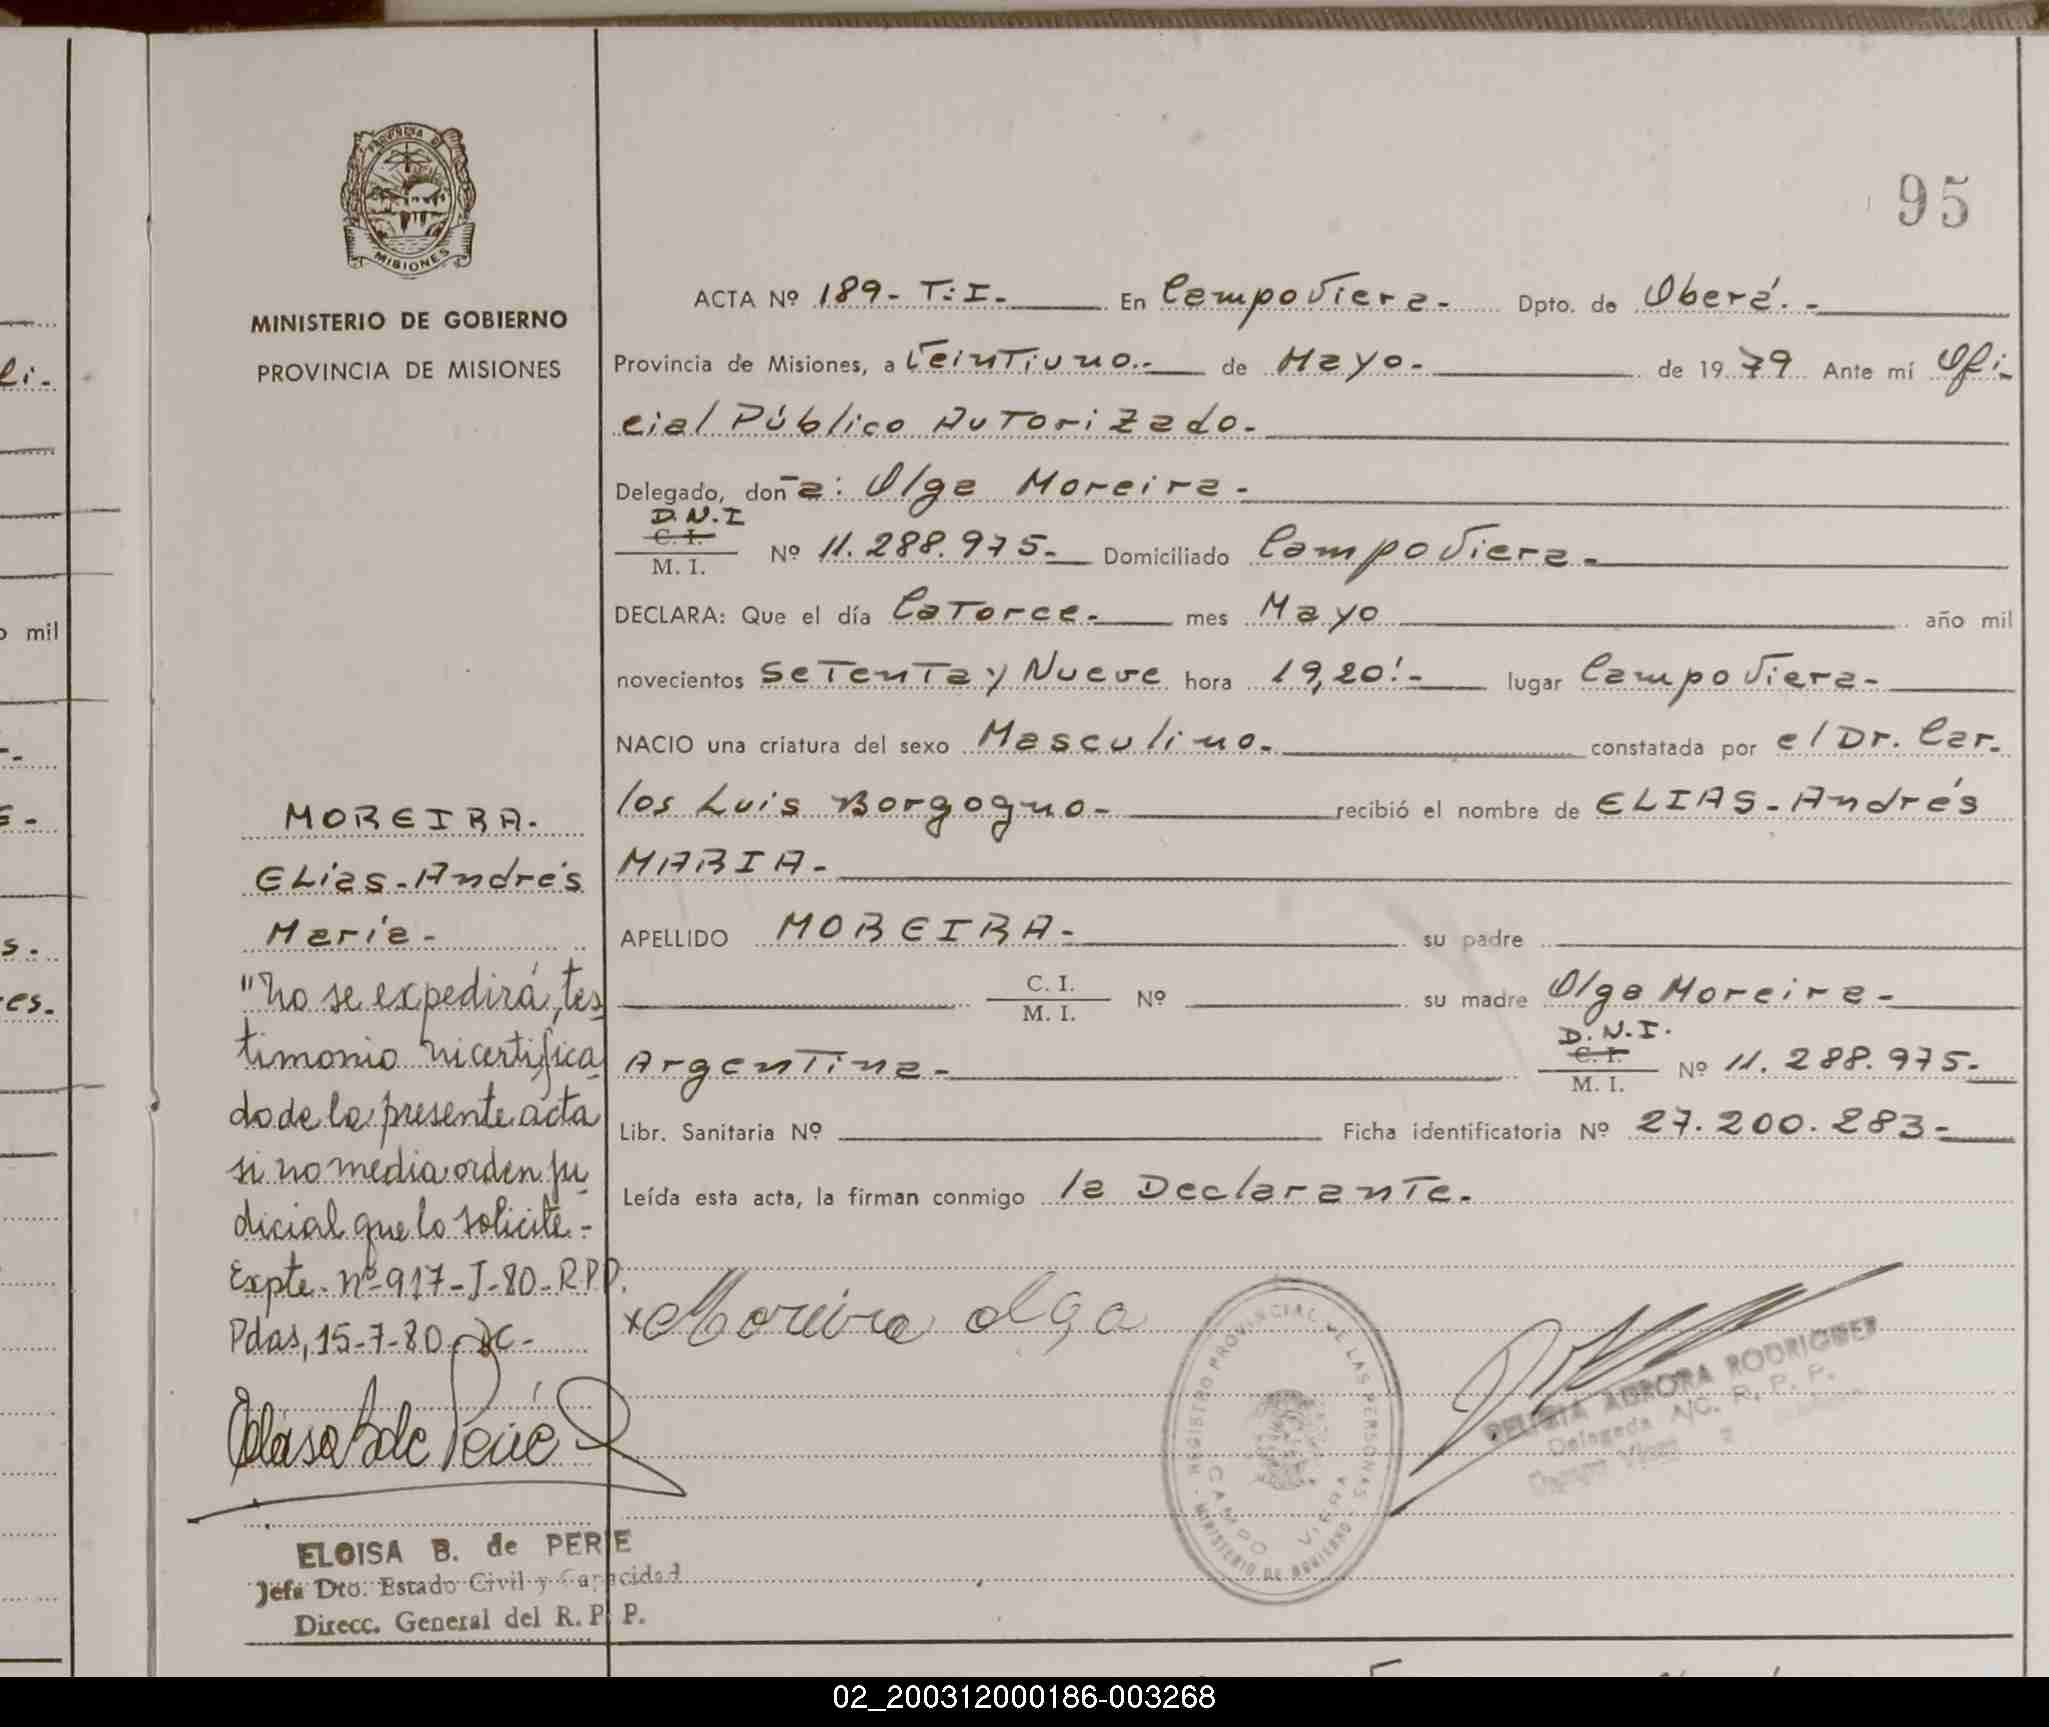 95
PROVINCIA DE
MISIONES
MINISTERIO DE GOBIERNO
PROVINCIA DE MISIONES
ACTA Nº 189- T:I.- En Campo Viera.- Dpto. de Oberá.-
Provincia de Misiones, a Veintiuno.- de Mayo.- de 1979 Ante mí Ofi-
cial Público Autorizado.-
Delegado, donã: Olga Moreira.-
D.N.I
C. I.
M. I.
Nº 11.288.975.- Domiciliado Campo Viera.-
DECLARA: Que el día Catorce.- mes Mayo año mil
novecientos Setenta y Nueve hora 19,20'.- lugar Campo Viera.-
NACIO una criatura del sexo Masculino.- constatada por el Dr. Car-
los Luis Borgogno.- recibió el nombre de ELIAS-Andrés
MARIA.-
APELLIDO MOREIRA.- su padre
C. I.
M. I.
Nº su madre Olga Moreira.-
Argentina.-
D.N.I.
C. I.
M. I.
Nº 11.288.975.-
Libr. Sanitaria Nº Ficha identificatoria Nº 27.200.283.-
Leída esta acta, la firman conmigo la Declarante.
x Moreira Olga
MOREIRA.
ELias-Andrés
María-
"No se expedirá, tes
timonio ni certifica
do de la presente acta
si no media orden ju
dicial que lo solicite.-
Expte. nº 917-J-80-R.P.P.
Pdas, 15-7-80.
ELOISA B. de PERIE
Jefa Dto. Estado Civil y Capacidad
Direcc. General del R. P. P.
REGISTRO PROVINCIAL DE LAS PERSONAS
MINISTERIO DE GOBIERNO
CAMPO VIERA
AURORA RODRIGUEZ
Delegada A/C. R. P. P.
Campo Viera
li.
o mil
s.
es.
02_200312000186-003268